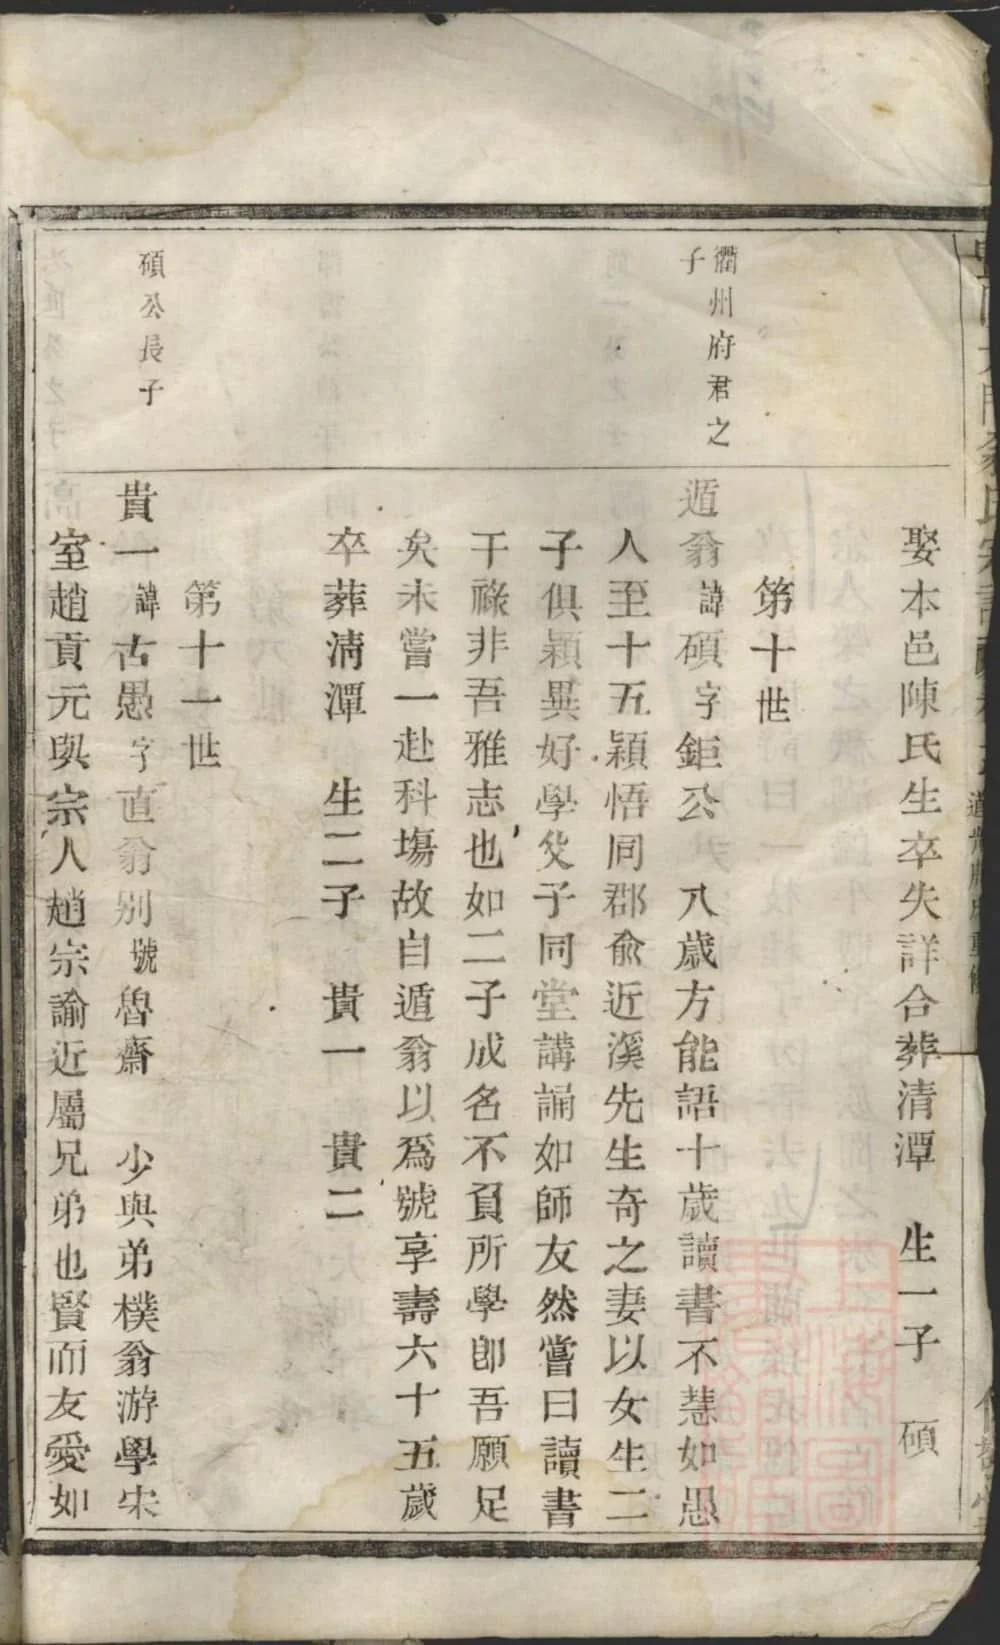 娶本邑陳氏生卒失詳合葬清潭　生一子　碩
第十世
衢州府君之
子
遁翁諱碩字鉅公　八歲方能語十歲讀書不慧如愚
人至十五穎悟同郡俞近溪先生奇之妻以女生二
子俱穎異好學父子同堂講誦如師友然嘗曰讀書
干祿非吾雅志也如二子成名不負所學卽吾願足
矣未嘗一赴科塲故自遁翁以爲號享壽六十五歲
卒葬淸潭　生二子　貴一　貴二
第十一世
碩公長子
貴一諱古愚字直翁别號魯齋　少與弟樸翁游學宋
室趙貢元與宗人趙宗諭近屬兄弟也賢而友愛如